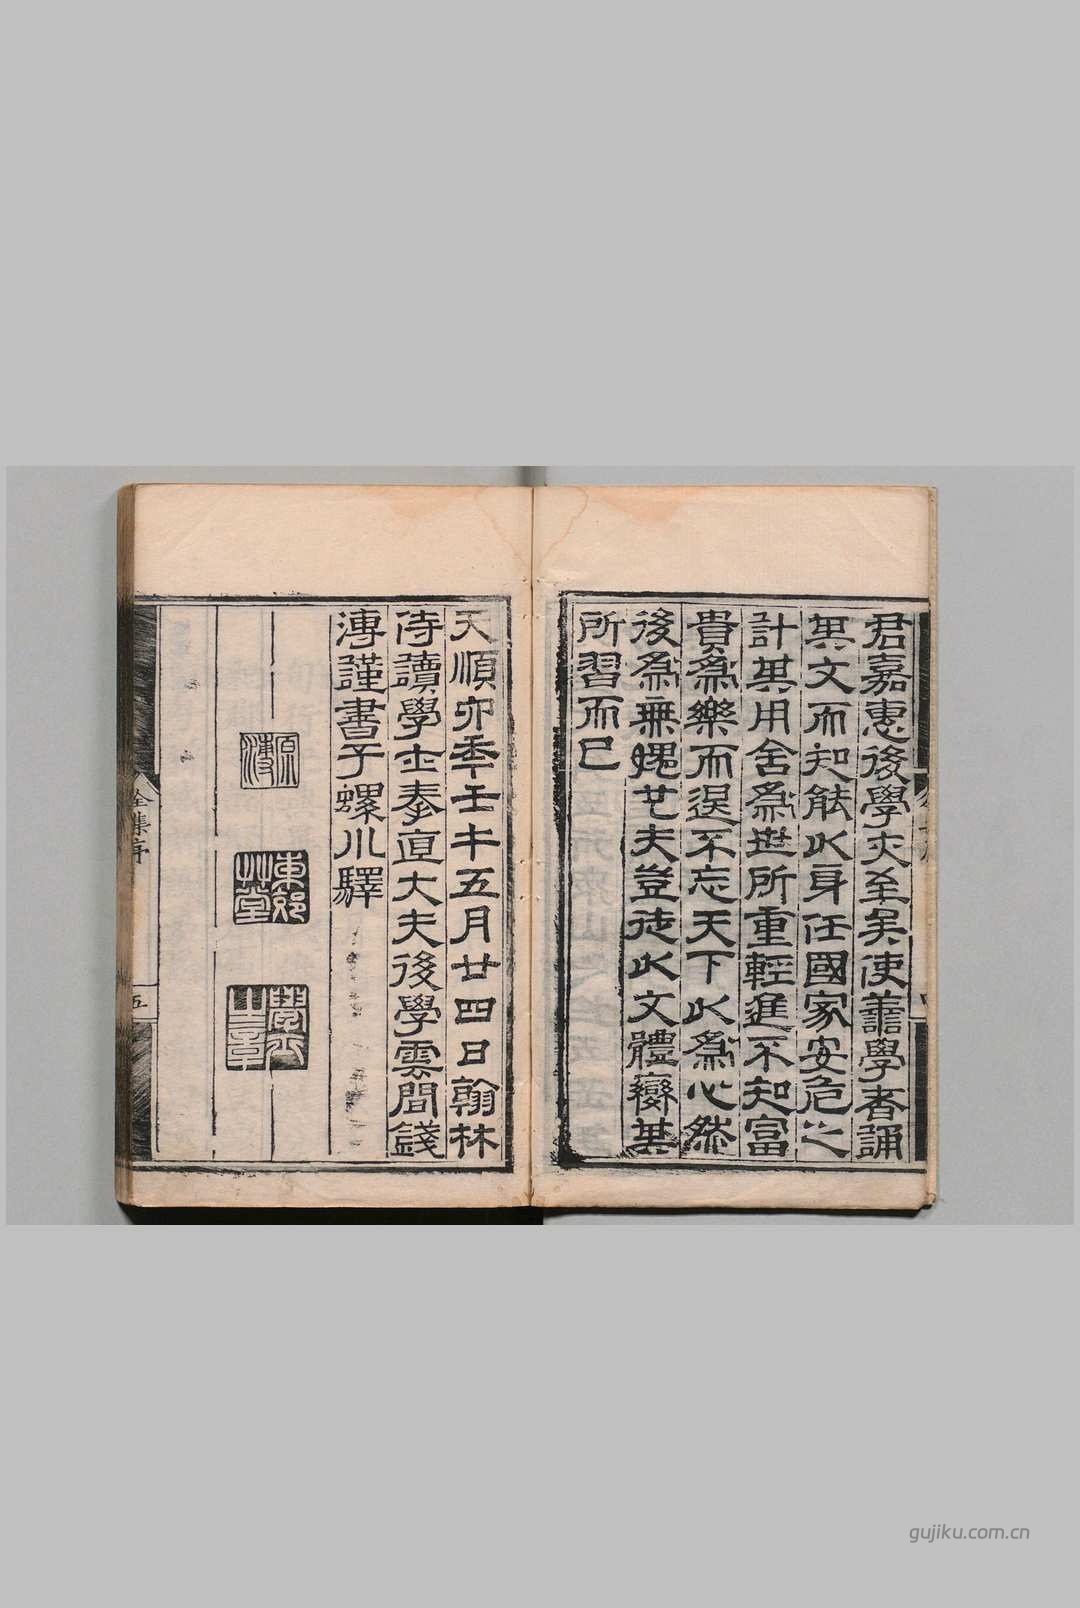 君嘉惠後學亦至矣使善學者誦
其文而知能以身任國家安危之
計其用舍為世所重輕進不知富
貴為樂而退不忘天下以為心然
後為無媿也夫豈徒以文體變其
所習而已
天順六年壬午五月廿四日翰林
侍讀學士奉直大夫後學雲間錢
溥謹書于螺川驛
原溥
全集序
五
gujiku.com.cn